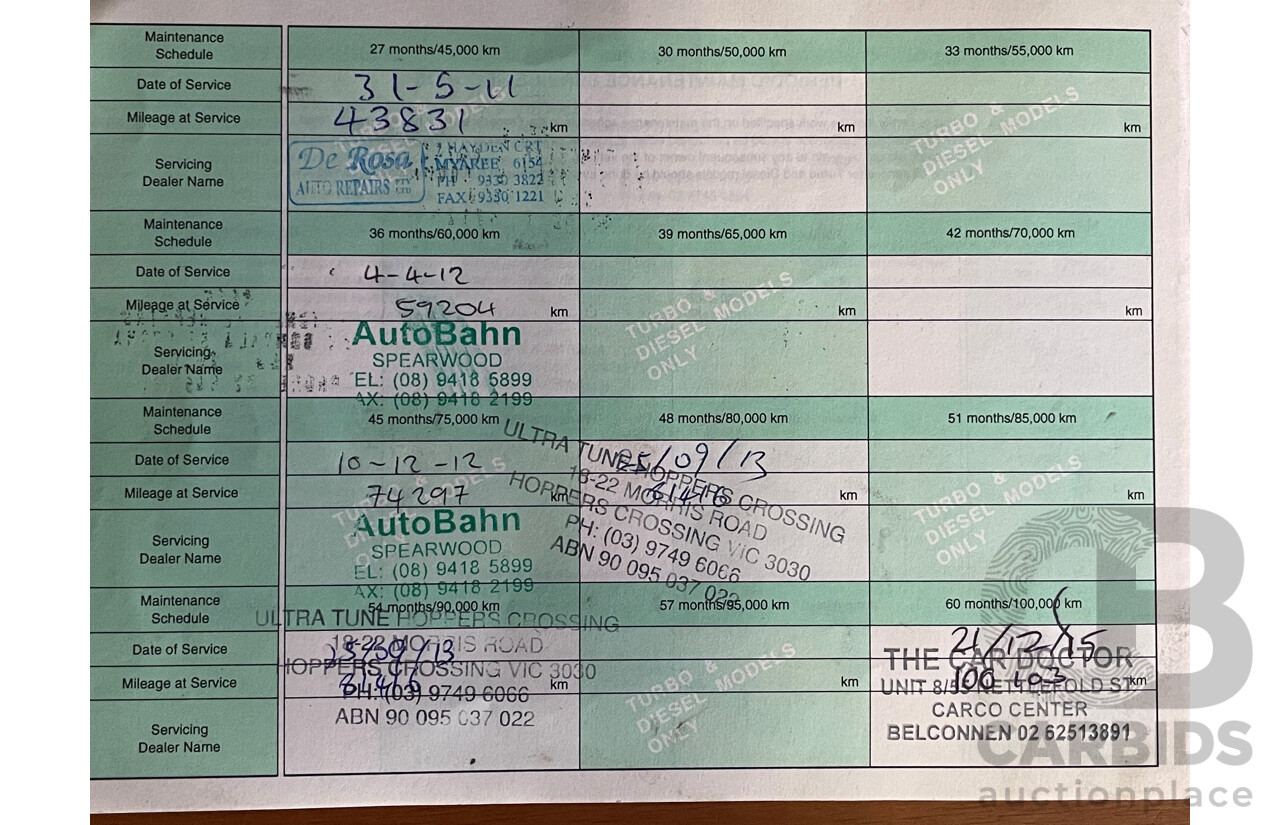 Maintenance Schedule 27 months/45,000 km 30 months/50,000 km 33 months/55,000 km
Date of Service 31-5-11
Mileage at Service 43831 km km km
Servicing Dealer Name
De Rosa
AUTO REPAIRS
HAYDEN CRT
MYAREE 6154
PH 9330 3822
FAX 9330 1221
TURBO &
DIESEL MODELS
ONLY
Maintenance Schedule 36 months/60,000 km 39 months/65,000 km 42 months/70,000 km
Date of Service 4-4-12
Mileage at Service 59204 km km km
Servicing Dealer Name
AutoBahn
SPEARWOOD
EL: (08) 9418 5899
AX: (08) 9418 2199
TURBO &
DIESEL MODELS
ONLY
Maintenance Schedule 45 months/75,000 km 48 months/80,000 km 51 months/85,000 km
Date of Service 10-12-12 /09/13
Mileage at Service 74297 km km km
Servicing Dealer Name
AutoBahn
SPEARWOOD
EL: (08) 9418 5899
AX: (08) 9418 2199
ULTRA TUNE HOPPERS CROSSING
18-22 MORRIS ROAD
HOPPERS CROSSING VIC 3030
PH: (03) 9749 6066
ABN 90 095 037 022
TURBO &
DIESEL MODELS
ONLY
Maintenance Schedule 54 months/90,000 km 57 months/95,000 km 60 months/100,000 km
Date of Service 21/12/15
Mileage at Service km km 100 103 km
Servicing Dealer Name
ULTRA TUNE HOPPERS CROSSING
18-22 MORRIS ROAD
HOPPERS CROSSING VIC 3030
PH: (03) 9749 6066
ABN 90 095 037 022
TURBO &
DIESEL MODELS
ONLY
THE CAR DOCTOR
UNIT 8/ KETTLEFOLD ST
CARCO CENTER
BELCONNEN 02 62513891
CARBIDS
auctionplace